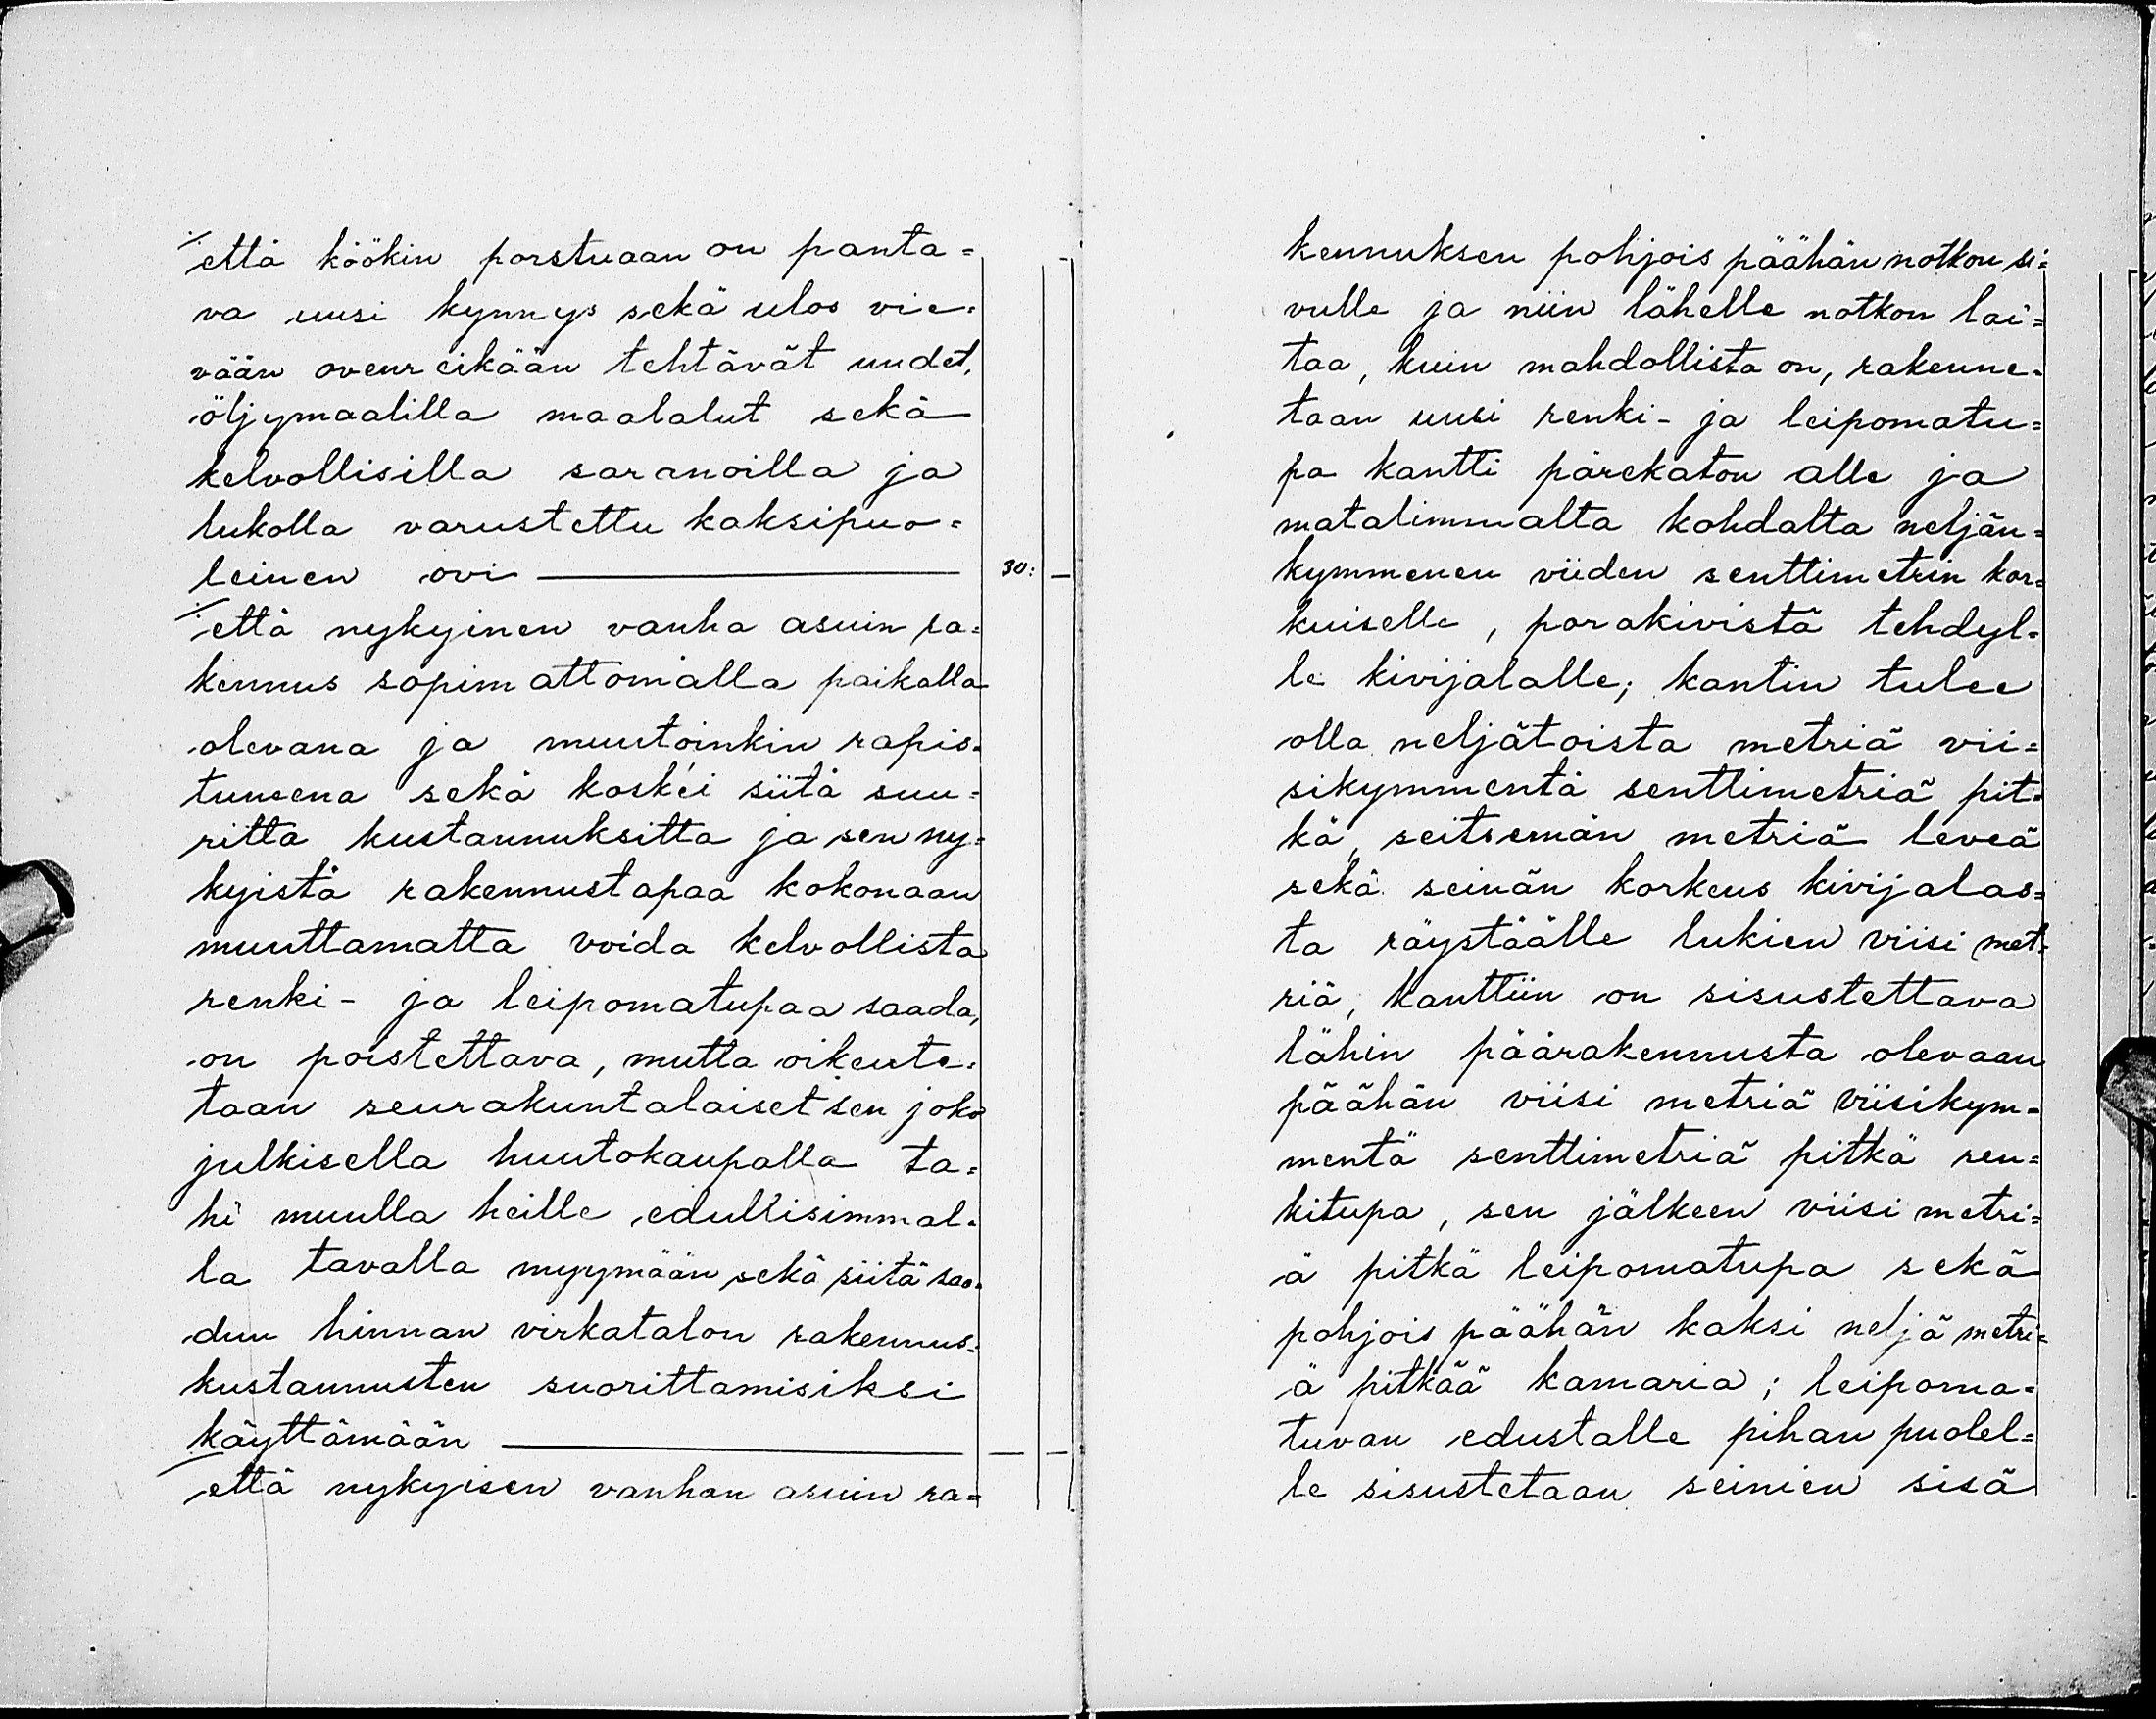 ⁒ että köökin porstuaan on panta=
va uusi kynnys sekä ulos vie=
vään ovenreikään tehtävät uudet,
öljymaalilla maalalut sekä
kelvollisilla saranoilla ja
lukolla varustettu kaksipuo=
leinen ovi — 30: —
⁒ että nykyinen vanha asuin ra=
kennus sopimattomalla paikalla
olevana ja muutoinkin rapis=
tuneena sekä kosk'ei siitä suu=
ritta kustannuksitta ja sen ny=
kyistä rakennustapaa kokonaan
muuttamatta voida kelvollista
renki- ja leipomatupaa saada,
on poistettava, mutta oikeute=
taan seurakuntalaiset sen joko
julkisella huutokaupalla ta=
hi muulla heille edullisimmal=
la tavalla myymään sekä siitä saa=
dun hinnan virkatalon rakennus=
kustannusten suorittamisiksi
käyttämään — — —
⁒ että nykyisen vanhan asuin ra=
kennuksen pohjois päähän notkon si=
vulle ja niin lähelle notkon lai=
taa, kuin mahdollista on, rakenne=
taan uusi renki- ja leipomatu=
pa kantti pärekaton alle ja
matalimmalta kohdalta neljän=
kymmenen viiden senttimetrin kor=
kuiselle, porakivistä tehdyl=
le kivijalalle; kantin tulee
olla neljätoista metriä vii=
sikymmentä senttimetriä pit=
kä, seitsemän metriä leveä
sekä seinän korkeus kivijalas=
ta räystäälle lukien viisi met=
riä, kanttiin on sisustettava
lähin päärakennusta olevaan
päähän viisi metriä viisikym=
mentä senttimetriä pitkä ren=
kitupa, sen jälkeen viisi metri=
ä pitkä leipomatupa sekä
pohjois päähän kaksi neljä metri=
ä pitkää kamaria; leipoma=
tuvan edustalle pihan puolel=
le sisustetaan seinien sisä